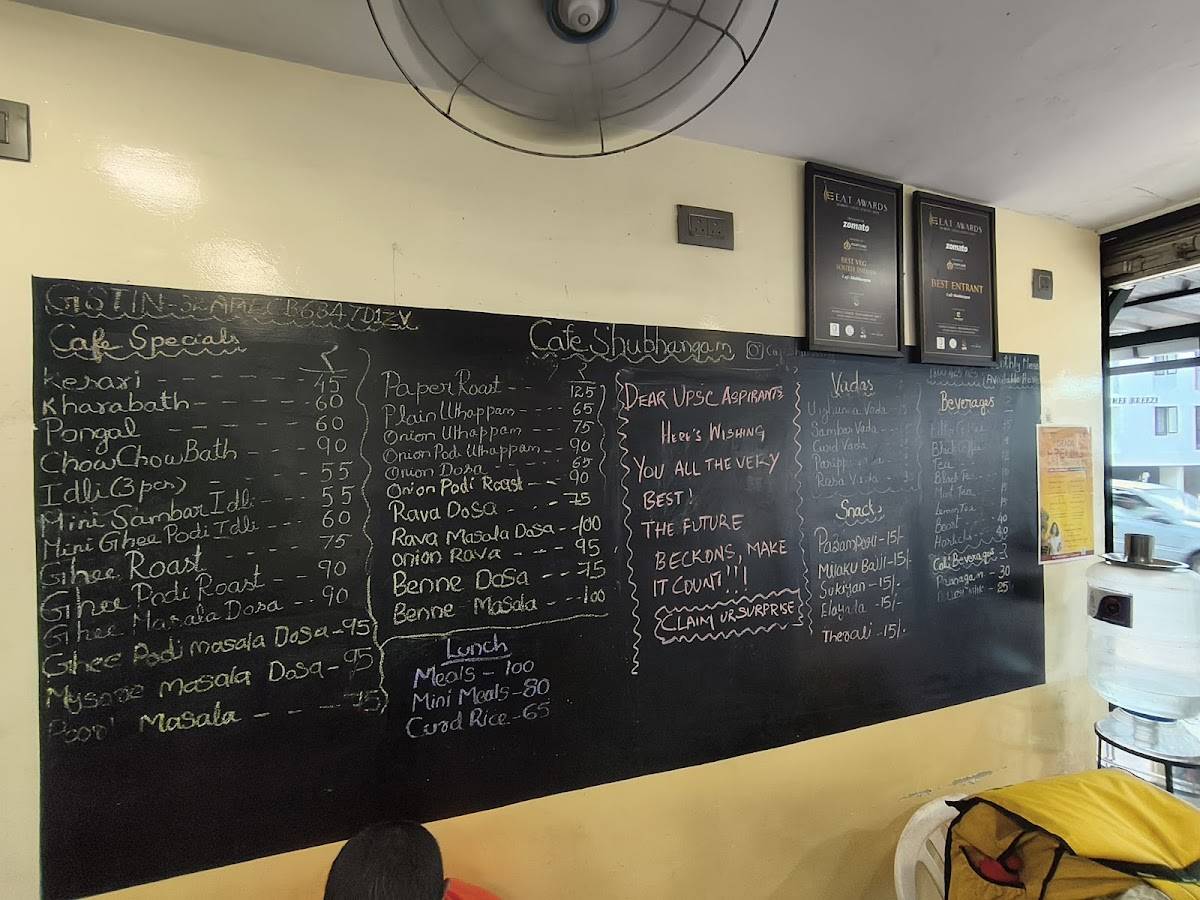 Cafe Specials
₹
Kesari - - - - - - - 45
Kharabath - - - - - 60
Pongal - - - - - - 60
Chow Chow Bath - - - 90
Idli (3 pcs) - - - - 55
Mini Sambar Idli - - - 55
Mini Ghee Podi Idli - - - 60
Ghee Roast - - - - 75
Ghee Podi Roast - - - 90
Ghee Masala Dosa - - 90
Ghee Podi Masala Dosa - 95
Mysore Masala Dosa - 95
Masala - - - - 75
Cafe Shubhangam
₹
Paper Roast - - - 125
Plain Uthappam - - - - 65
Onion Uthappam - - - - 75
Onion Podi Uthappam - - 90
Onion Dosa - - - - 65
Onion Podi Roast - - - 90
Rava Dosa - - - - 75
Rava Masala Dosa - - 100
Onion Rava - - - - 95
Benne Dosa - - - 75
Benne Masala - - - 100
Lunch
Meals - 100
Mini Meals - 80
Curd Rice - 65
DEAR UPSC ASPIRANTS
HERE'S WISHING
YOU ALL THE VERY
BEST!
THE FUTURE
BECKONS, MAKE
IT COUNT!!!
CLAIM UR SURPRISE
Vadas
Sambar Vada
Curd Vada
Rasa Vada
Snacks
Pazampori - 15/-
Milaku Bajji - 15/-
Sukiyan - 15/-
Elayada - 15/-
Therali - 15/-
Beverages
Tea
Black Tea
Mint Tea
Lemon Tea
Boost - 40
Horlicks
Cold Beverages
Panagam - 30
25
EAT AWARDS
zomato
BEST VEG
SOUTH INDIAN
Café Shubhangam
EAT AWARDS
zomato
BEST ENTRANT
Café Shubhangam